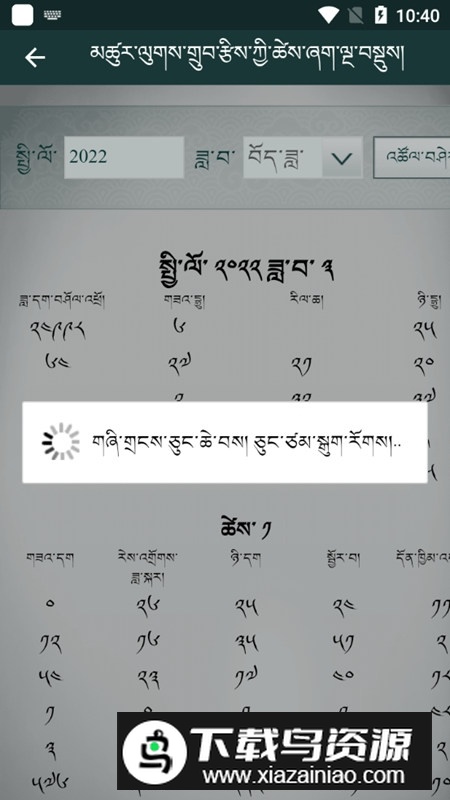 10:40
མཚུར་ལུགས་གྲུབ་རྩིས་ཀྱི་ཚེས་ཞག་ལྔ་བསྡུས།
སྤྱི་ལོ་ 2022 ཟླ་བ་ བོད་ཟླ་ འཚོལ་བཤེ
སྤྱི་ལོ་ ༢༠༢༢ ཟླ་བ་ ༣
ཟླ་དག་བཤོལ་འཕྲོ། གཟའ་རྒྱུ། རིལ་ཆ། ཉི་རྒྱུ།
༢༤༩༩༨ ༦ ༢༥
༦༤ ༢༧ ༢༡ ༢༠
གཞི་གྲངས་ཅུང་ཆེ་བས། ཅུང་ཙམ་སྒུག་རོགས།..
ཚེས་ ༡
གཟའ་དག རེས་འགྲོགས་ ཉི་དག སྦྱོར་བ།
ཟླ་སྐར།
༠ ༢༦ ༢༥ ༢༤ ༡༡
༡༢ ༡༦ ༣༥ ༥༡ ༢
༥༤ ༢༣ ༡༧ ༤༠
༡
༣
༥༧༦
下载鸟资源
www.xiazainiao.com